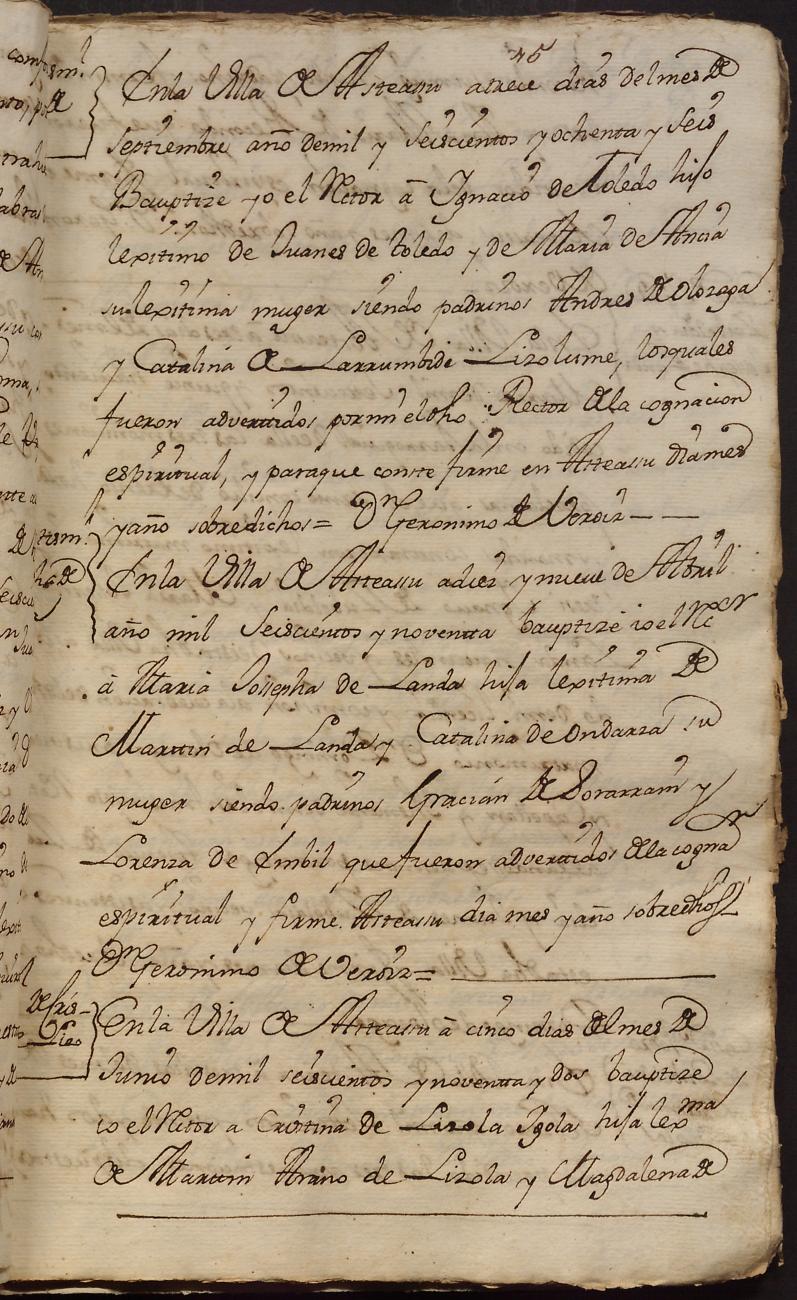 45
En la Villa de Asteassu a trece dias del mes de
septiembre año de mil y seiscientos y ochenta y seis
Bauptize yo el Rctor â Ygnacio de Toledo hijo
lexitimo de Juanes de toledo y de Maria de Ancia
su lexitima muger siendo padrinos Andres de olozaga
y Catalina de Larrumbide Lizolume, los quales
fueron advertidos por mi el dho Rector de la cognacion
espiritual, y para que conste firme en Asteassu dia mes
y año sobredichos = Dn Geronimo de Veroiz
En la Villa de Asteassu a diez y nueve de Abril
año mil Seiscientos y noventta bauptize io el
â Maria Josepha de Landa hija lexitima de
Marttin de Landa y Catalina de Ondarza su
muger siendo padrinos Gracian de y
Lorenza de Embil que fueron adverttidos de la cogna
espiritual y firme Asteassu dia mes y año sobredhos
Dn Geronimo de Veroiz =
En la Villa de Asteassu â cinco dias del mes de
Junio de mil seiscientos y noventta y dos bauptize
io el Rctor a Cristina de Lizola Ygola hija lexma
de Marttin Arano de Lizola y Magdalena de